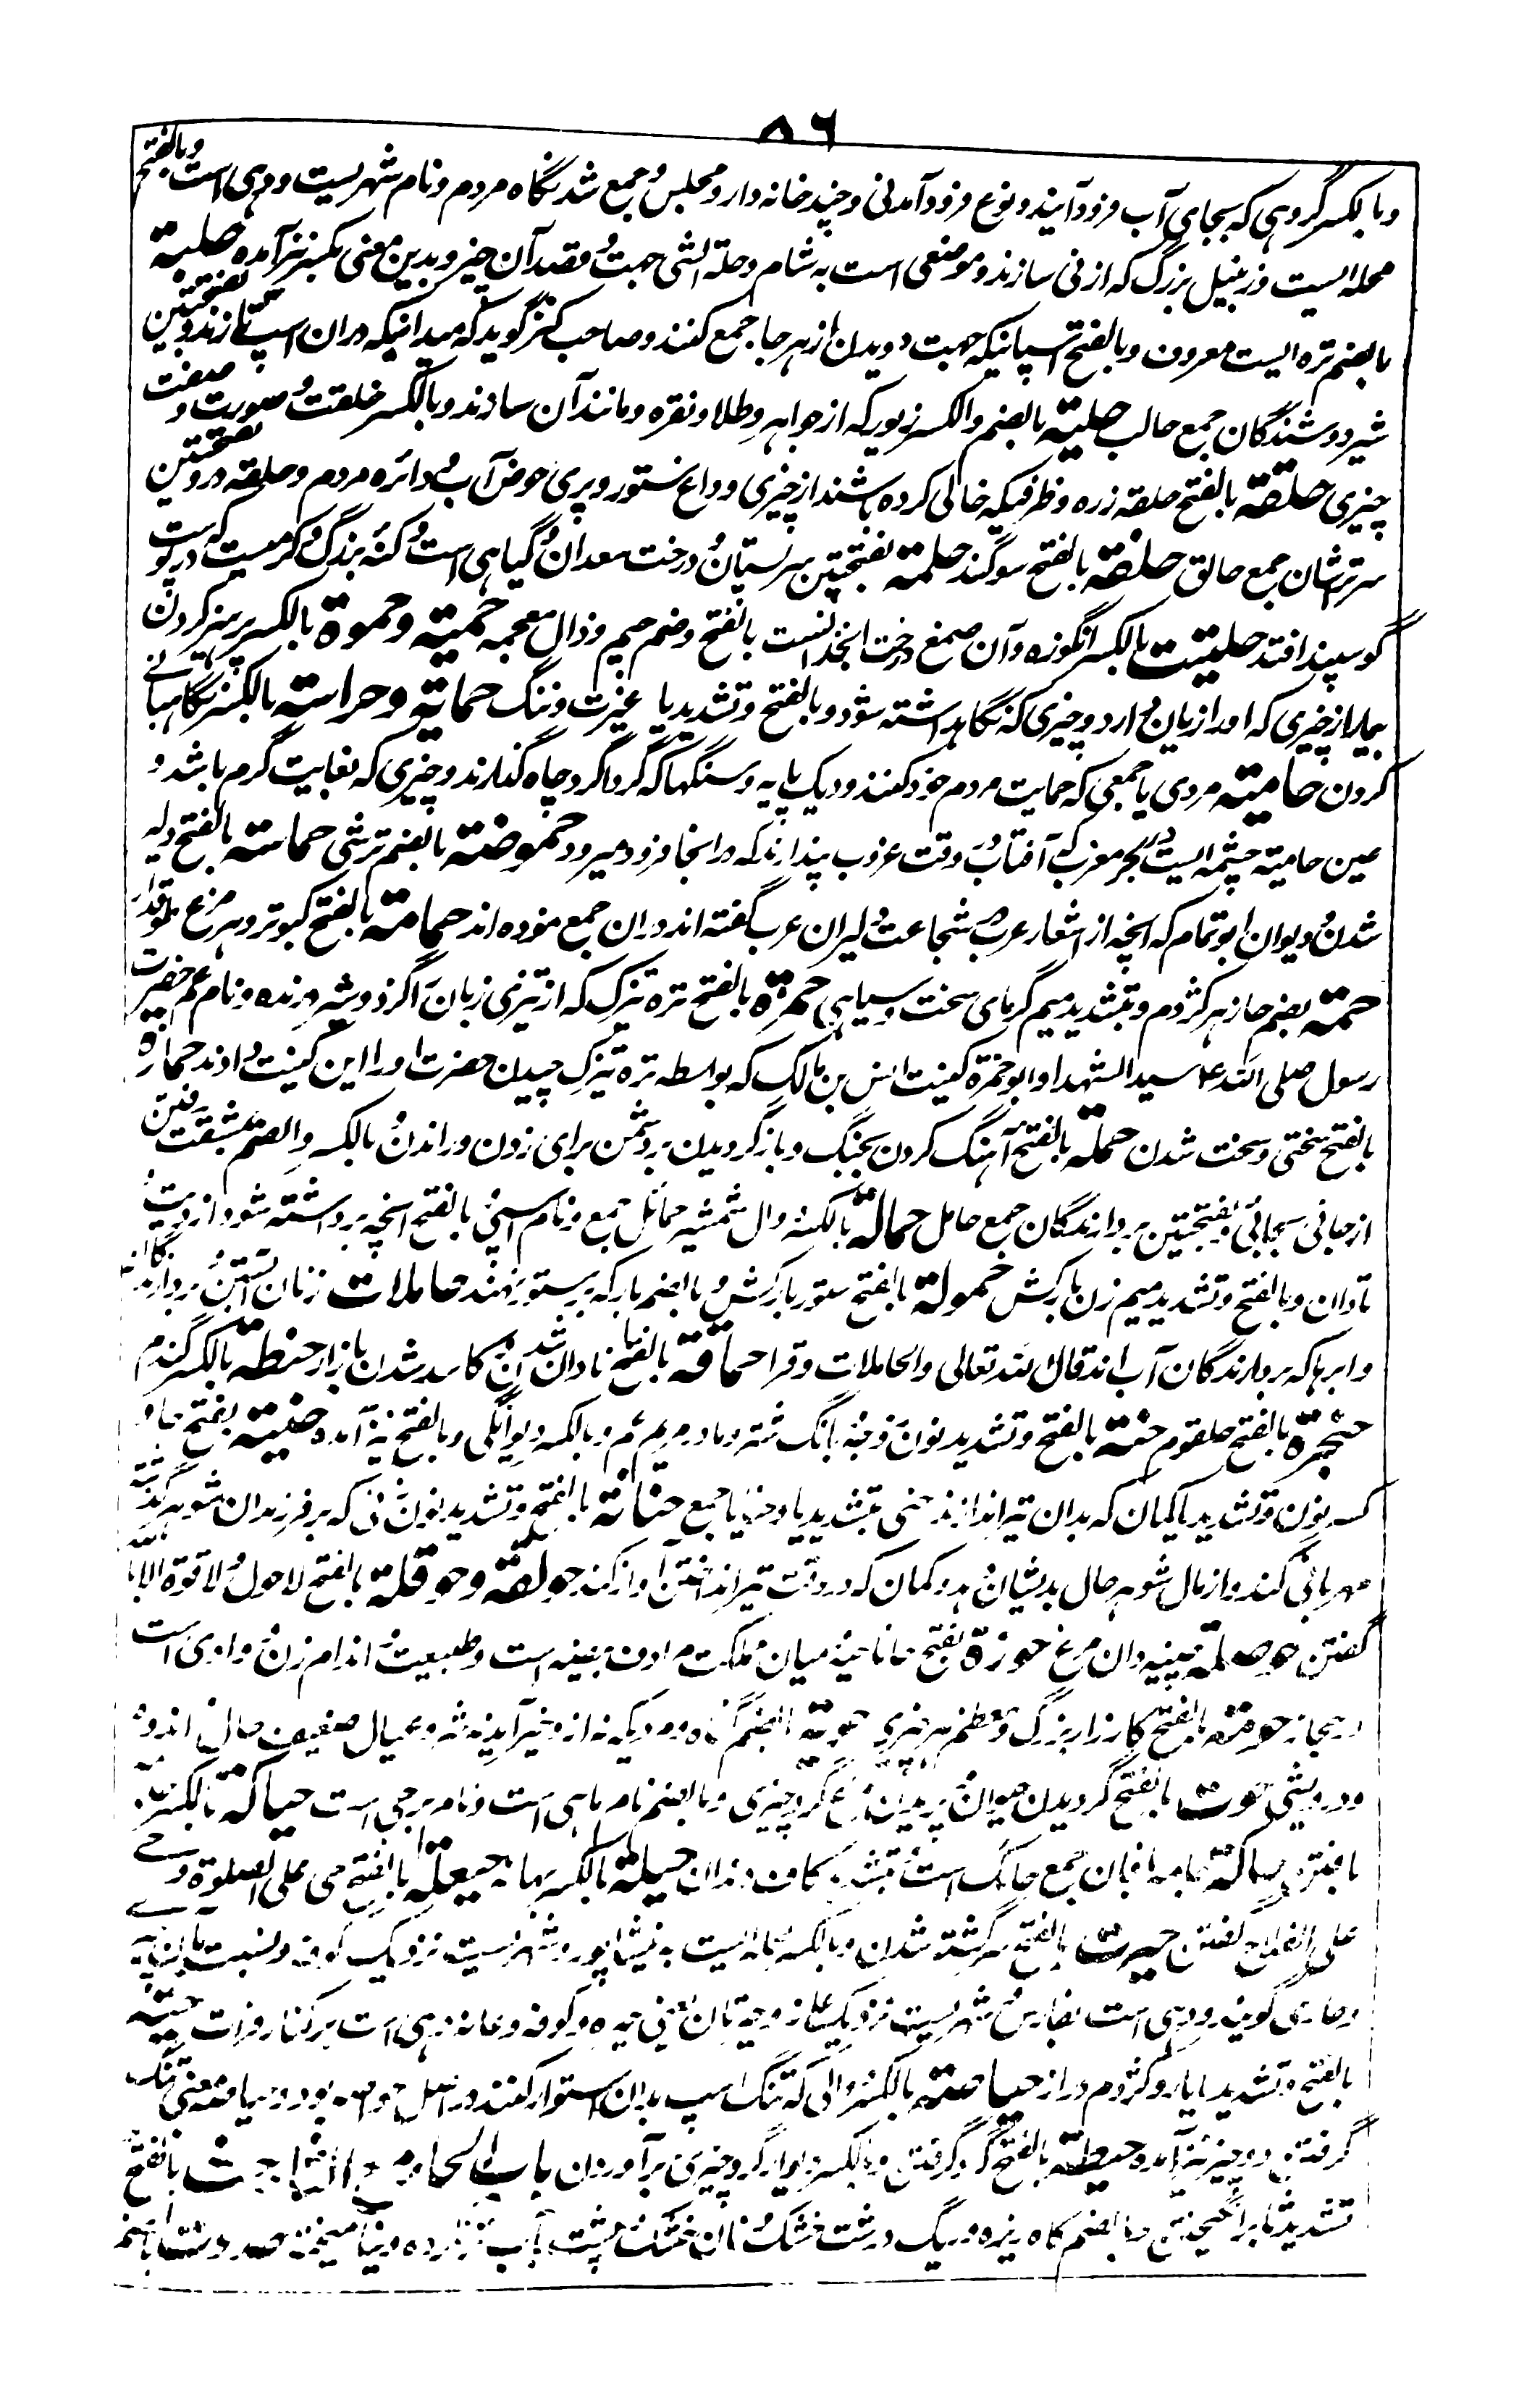 ۸۶
وبالکسر گروهی که بجای آب فرود آیند و نوع فرود آمدنی و چند خانه دار و مجلس و جمع شدنگاه مردم و نام شهریست و دهی است وبالفتح
محله ایست و زنبیل بزرگ که از نی سازند و موضعی است به شام و حلة الشی جهت و قصد آن چیز و بدین معنی بکسر نیز آمده حلبة
بالضم تره ایست معروف وبالفتح اسپانیکه جهت دویدن از هر جا جمع کنند و صاحب کنز گوید که میدانیکه دران اسپ تازند و بفتحتین
شیر دوشندگان جمع حالب حلیة بالضم والکسر زیور که از جواهر و طلا و نقره و مانند آن سازند وبالکسر خلقت و صورت و صفت
چیزی حلقة بالفتح حلقه زره و ظرفیکه خالی کرده باشند از چیزی و داغ ستور و پری حوض آب و دائره مردم و حلقه در و بفتحتین
سرتراشان جمع حالق حلفة بالفتح سوگند حلمة بفتحتین سر پستان و درخت سعدان و گیاهی است و کنه بزرگ و کرمیست که در پوست
گوسپند افتد حلتیت بالکسر انگوزه و آن صمغ درخت انجدانست بالفتح وضم جیم و ذال معجمه حمیة وحموة بالکسر پرهیز کردن
بیمار از چیزی که او را زیان دارد و چیزی که نگاهداشته شود وبالفتح و تشدید یا غیرت و ننگ حمایة وحراسة بالکسر نگاهبانی
کردن حامیة مردی یا جمعی که حمایت مردم خود کنند و دیک پایه و سنگها که گرداگرد چاه گذارند و چیزی که بغایت گرم باشد و
عین حامیة چشمه ایست در بحر مغرب که آفتاب وقت غروب پندارند که در انجا فرود میرود حموضة بالضم ترشی حماسة بالفتح دلیر
شدن و دیوان ابو تمام که انچه از اشعار عرب در شجاعت دلیران عرب گفته اند دران جمع نموده اند حمامة بالفتح کبوتر و هر مرغ طوقدار
حمة بضم حا زهر کژدم و بتشدید میم گرمای سخت و سیاهی حمزة بالفتح تره تیزک که از تیزی زبان را گزد و شیر درنده و نام عم حضرت
رسول صلی الله ع سید الشهدا و ابو حمزة کنیت انس بن مالک که بواسطه تره تیزک چیدن حضرت او را این کنیت دادند حمازة
بالفتح سختی و سخت شدن حملة بالفتح آهنگ کردن بجنگ و باز گردیدن بر دشمن برای زدن و راندن وبالکسر والضم بمشقت رفتن
از جائی بجائی و بفتحتین بردارندگان جمع حامل حمالة بالکسر دوال شمشیر حمائل جمع و نام اسپی بالفتح انچه برداشته شود از دیت و
تاوان وبالفتح و تشدید میم زن بارکش حمولة بالفتح ستور بارکش وبالضم بار که بر ستور نهند حاملات زنان آبستن و بردارندگان
و ابرها که بردارندگان آب اند قال الله تعالی والحاملات وقرا حماقة بالفتح نادان شدن و کاسد شدن بازار حنطة بالکسر گندم
حنجرة بالفتح حلقوم حنة بالفتح و تشدید نون زوجه و بانگ شتر و مادر مریم ع م وبالکسر دیوانگی وبالفتح نیز آمده حنیة بفتح حا و
کسر نون و تشدید یا کمان که بدان تیر اندازند حنی بتشدید یا و حنایا جمع حنانة بالفتح و تشدید نون زنی که بر فرزندان شوهر گذشته
مهربانی کند و از مال شوهر حال بدیشان دهد و کمان که در وقت تیر انداختن آواز کند حولقة وحوقلة بالفتح لاحول ولا قوة الا بالله
گفتن حوصلة چینه دان مرغ حوزة بفتح حا ناحیه و میان مملکت مرادف بیضه است و طبیعت و اندام زن و وادی است
در حجاز حومة بالفتح کارزار بزرگ و معظم هر چیزی حوبة بالضم گناه و مردیکه نه از و خیر آید نه شر و عیال ضعیف حال اندوه
و درویشی حوت بالفتح گردیدن حیوان و پریدن مرغ گرد چیزی وبالضم نام ماهی است و نام برجی است حیاکة بالکسر جامه
بافتن حاکة جامه بافان جمع حائک است و بتشدید کاف دندان حیلة بالکسر بهانه حیعلة بالفتح حی علی الصلوة وحی
علی الفلاح گفتن حیرت بالفتح سرگشته شدن وبالکسر محله ایست به نیشاپور و شهریست نزدیک کوفه و نسبت بآن حیری
و حاری گویند و دهی است بفارس و شهریست نزدیک عانه و حیرتان یعنی حیره و کوفه و عانه دهی است بر کنار فرات حیة
بالفتح و تشدید یا مار و کژدم دراز حیاصة بالکسر دوالی که تنگ اسپ بدان استوار کنند در اصل حواصه بود و بیامعنی تنگ
گرفتن دو چیز نیز آمده حیطة بالفتح گرد گرفتن وبالکسر دیوار گرد چیزی برآوردن باب الحاء مع الثاء حث بالفتح
تشدید ثا برانگیختن وبالضم کاه ریزه و ریگ درشت خشک و نان خشک و پست بآب تر نکرده و نیامیخته حدوث بالضم